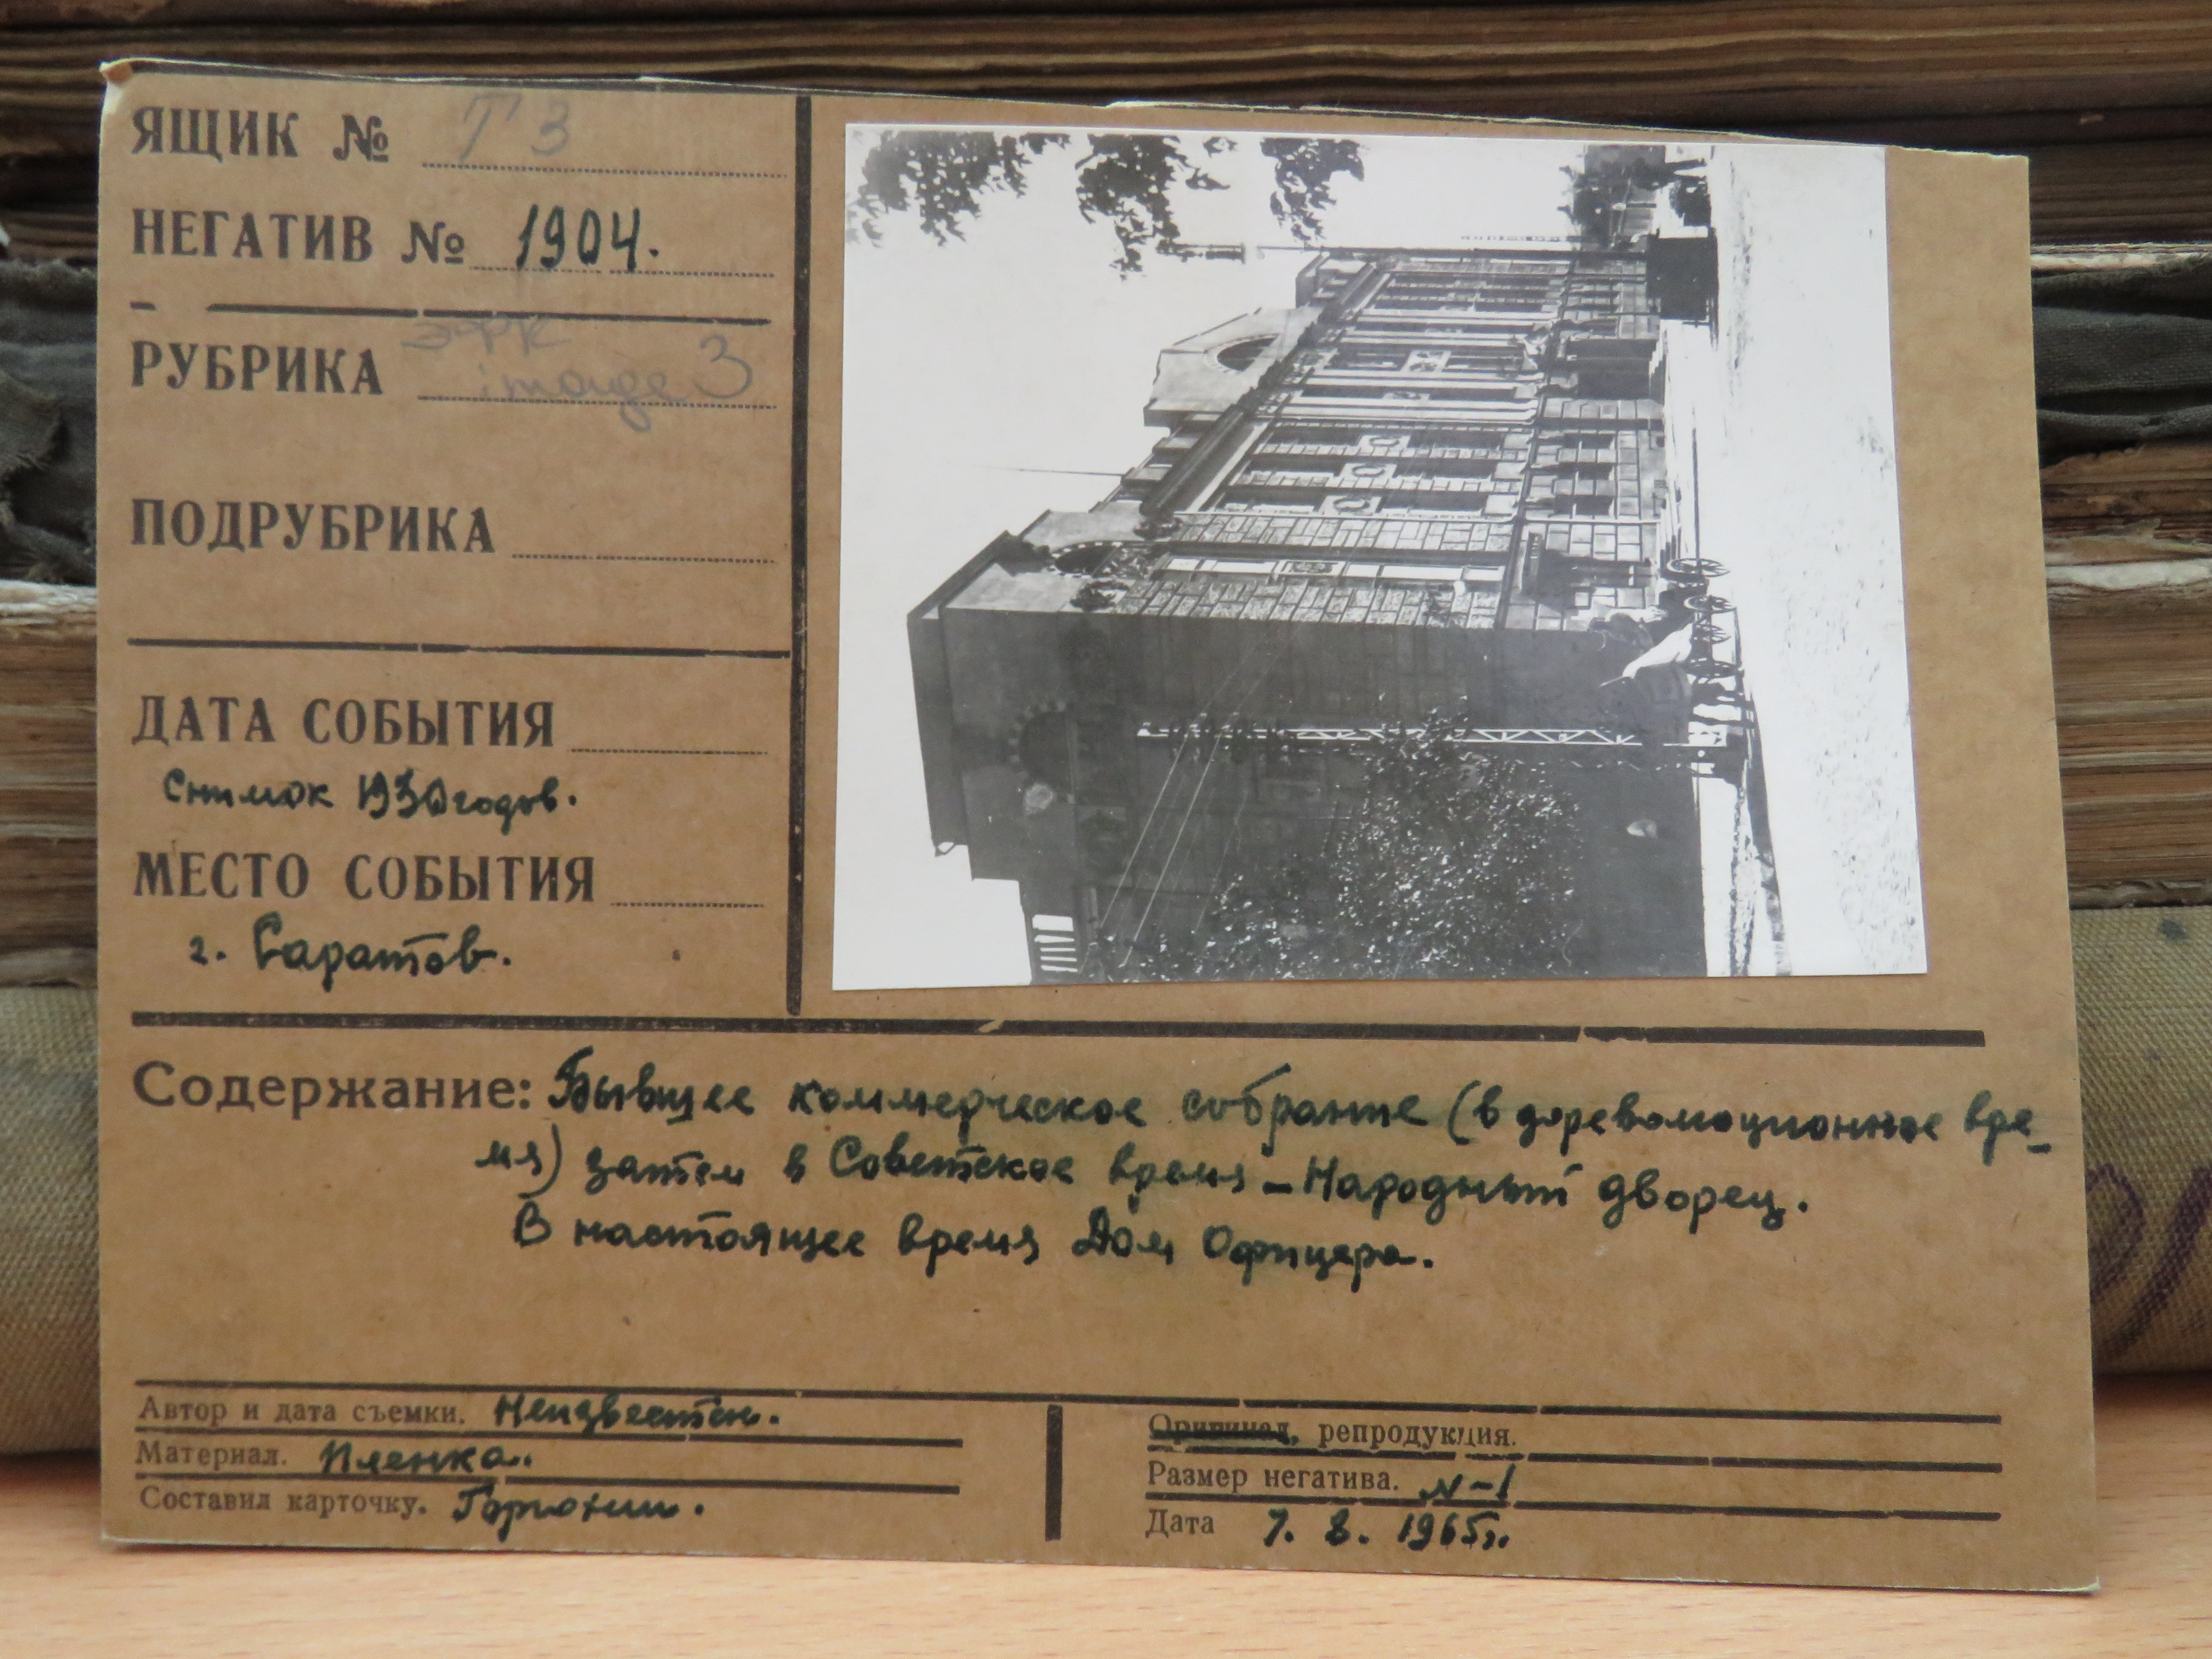 ЯЩИК № Т 3
НЕГАТИВ № 1904.
РУБРИКА image 3
ПОДРУБРИКА
ДАТА СОБЫТИЯ
Снимок 1930 годов.
МЕСТО СОБЫТИЯ
г. Саратов.
Содержание: Бывшее коммерческое собрание (в дореволюционное вре-
мя) затем в Советское время – Народный дворец.
В настоящее время Дом Офицера.
Автор и дата съемки. Неизвестен.
Материал. Пленка.
Составил карточку.
Оригинал, репродукция.
Размер негатива. N-1
Дата 7. 8. 1965г.